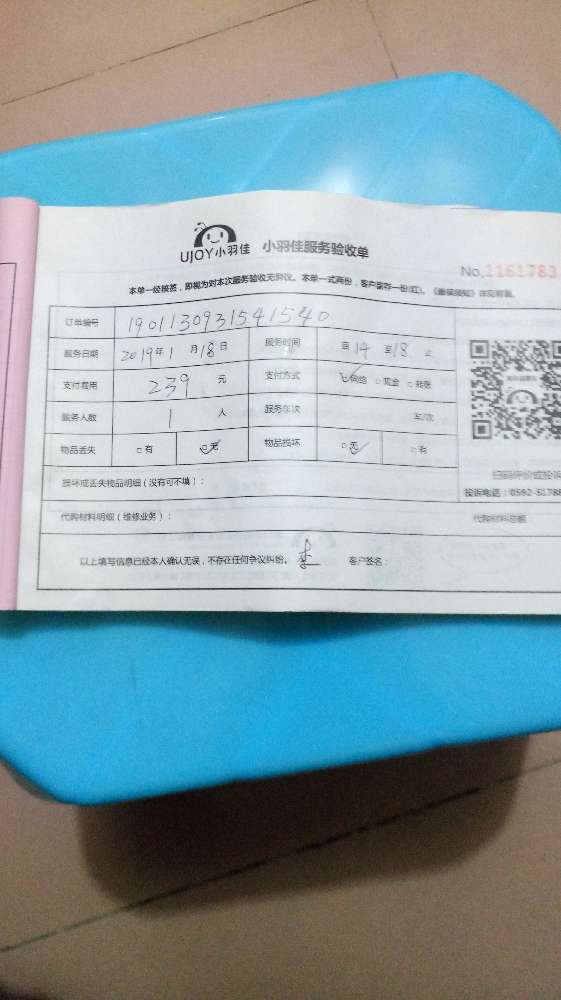 UJOY小羽佳 小羽佳服务验收单
No.1161783
本单一经接签,即视为对本次服务验收无异议。本单一式两份,客户留存一份(红)。
订单编号 1901130931541540
服务日期 2019年1月18日 服务时间 自14至18止
支付费用 239元 支付方式 网络 现金 转账
服务人数 1人 服务车次 车/次
物品丢失 有 无 物品损坏 无 有
损坏或丢失物品明细(没有可不填):
扫码评价或投诉
投诉电话:0592-5178
代购材料明细(维修业务): 代购材料总额
以上填写信息已经本人确认无误,不存在任何争议纠纷。 客户签名: